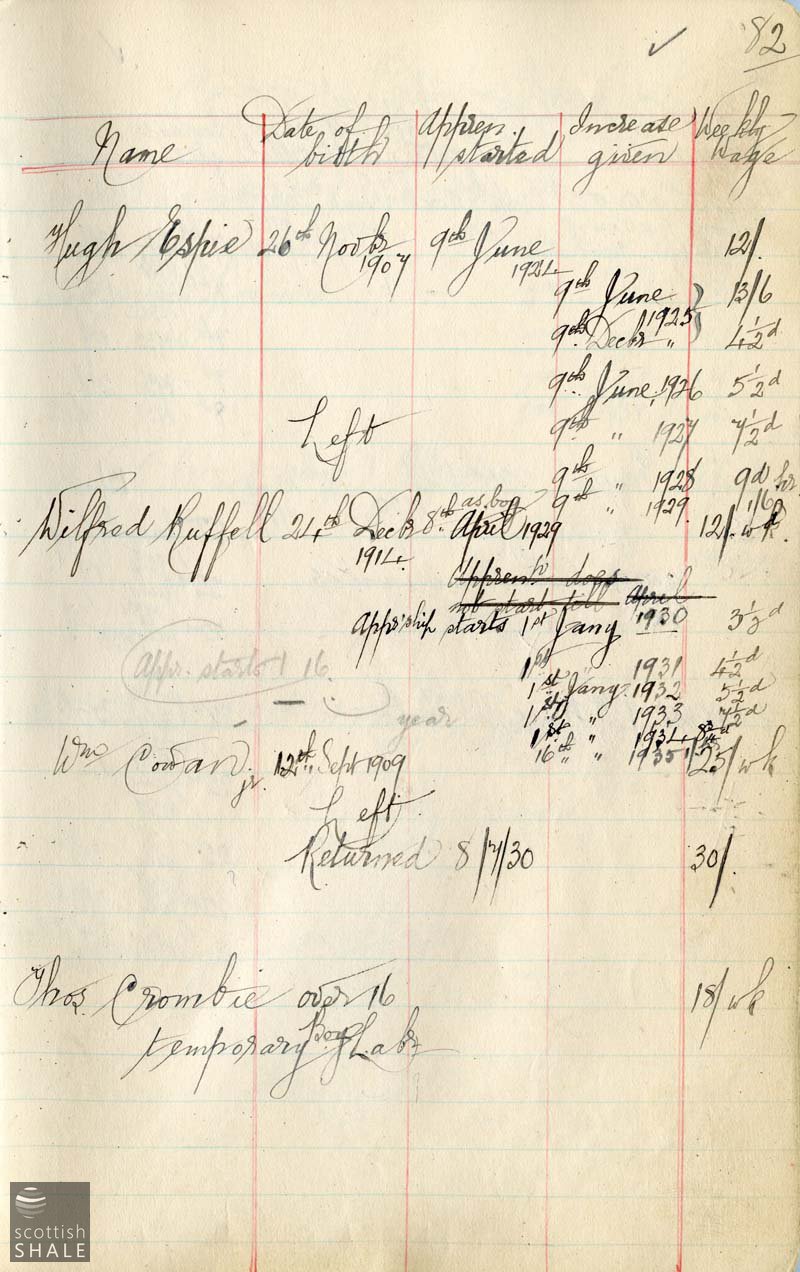 ✓ 82
Name Date of birth Appren. started Increase given Weekly Wage
Hugh Espie 26th Novbr 1907 9th June 1924 12/.
9th June 13/6
9th Decbr 1925 4½d
9th June 1926 5½d
Left 9th " 1927 7½d
9th " 1928 9d hr
9th " 1929 1/6
Wilfred Ruffell 24th Decbr 1914 8th April 1929 as boy 12/. wk.
Apprent'p does
not start till April
Appr'ship starts 1st Jany 1930 3½d
Appr. starts 16
year
1st " 1931 4½d
1st Jany. 1932 5½d
1st " 1933 7½d
1st " 1934 8¾d
16th " 1935 25/ wk
Wm Cowan jr. 12th Sept 1909
Left
Returned 8/7/30 30/.
Thos. Crombie over 16 18/ wk
temporary Boy Labr
scottish
SHALE